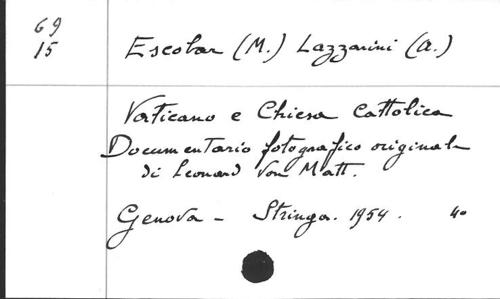 69
15
Escobar (M.) Lazzarini (A.)
Vaticano e Chiesa Cattolica
Documentario fotografico originale
di Leonard Von Matt.
Genova - Stringa. 1954. 4°